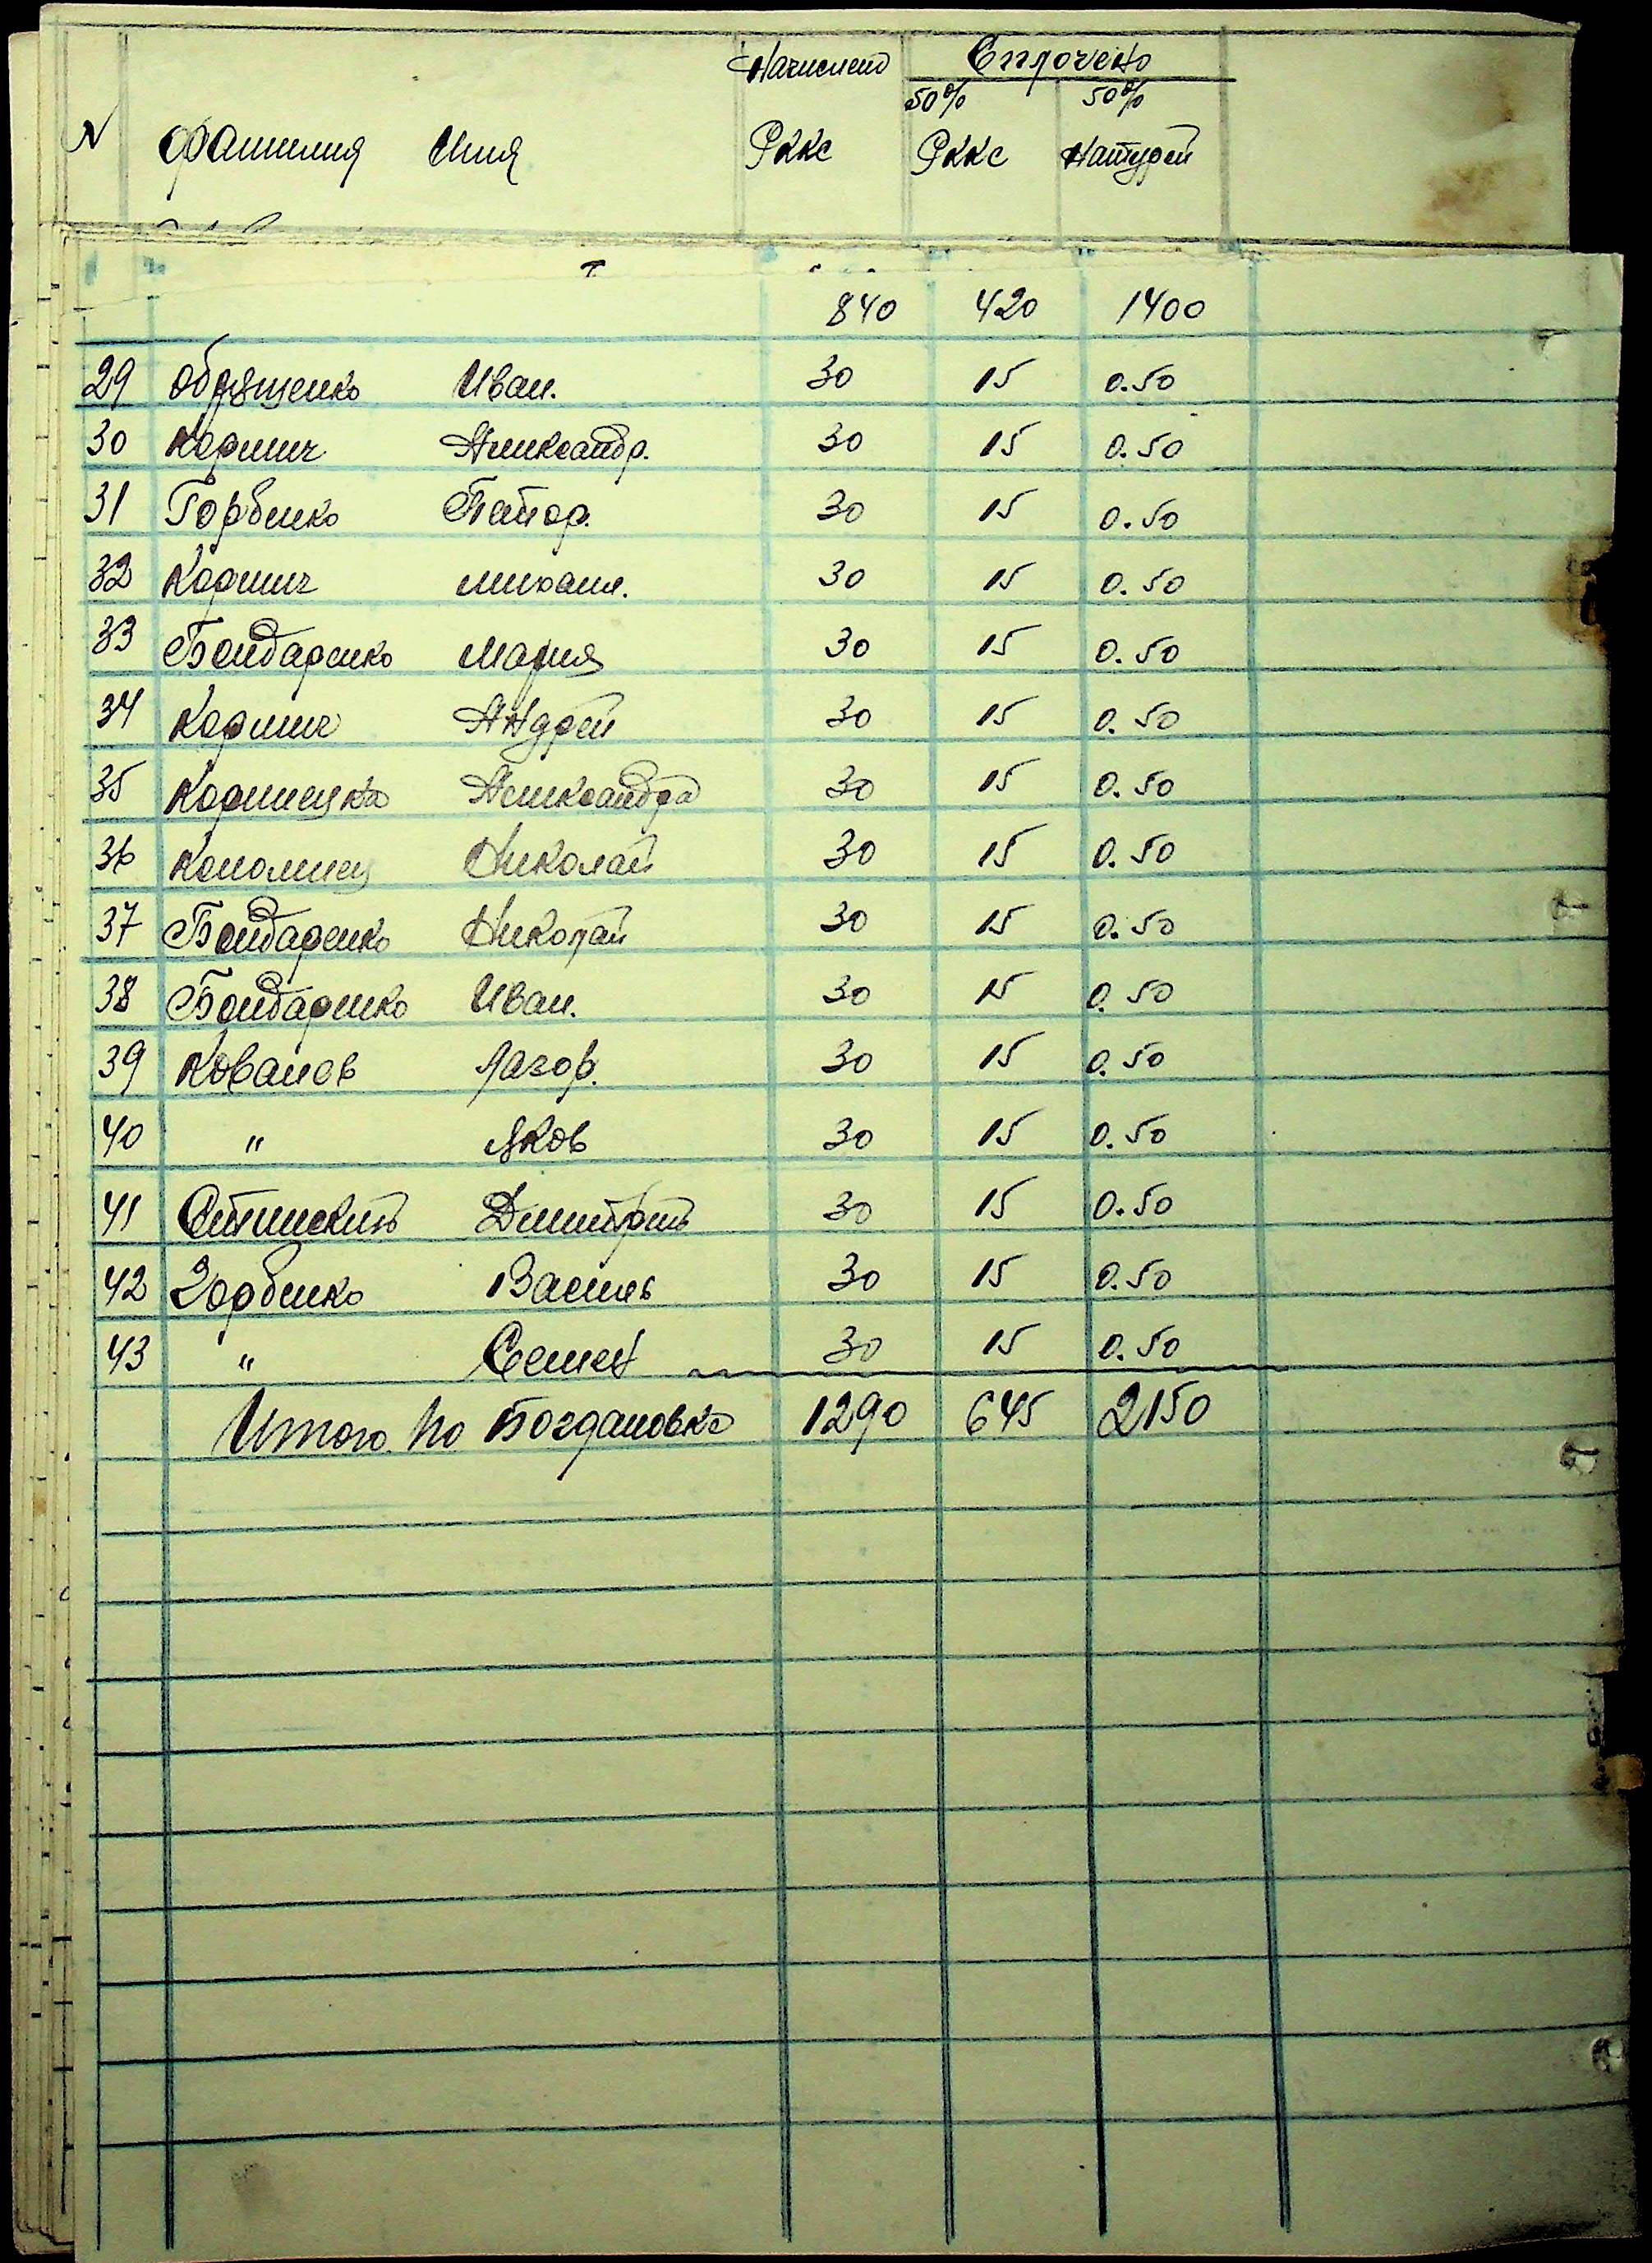 Начислено Сплочено
50% 50%
N Фамилия Имя Рккс Рккс Натурой
840 420 1400
29 Обрященко Иван. 30 15 0.50
30 Кормич Александр. 30 15 0.50
31 Горбенко 30 15 0.50
32 Кормич михаил. 30 15 0.50
33 Бондаренко Мария 30 15 0.50
34 Кормич Андрей 30 15 0.50
35 Александра 30 15 0.50
36 Коломиец Николай 30 15 0.50
37 Бондаренко Николай 30 15 0.50
38 Бондаренко Иван. 30 15 0.50
39 Ковалев Лазор. 30 15 0.50
40 " Яков 30 15 0.50
41 Дмитрий 30 15 0.50
42 Горбенко Василь 30 15 0.50
43 " Семен 30 15 0.50
Итого по Богдановке 1290 645 2150